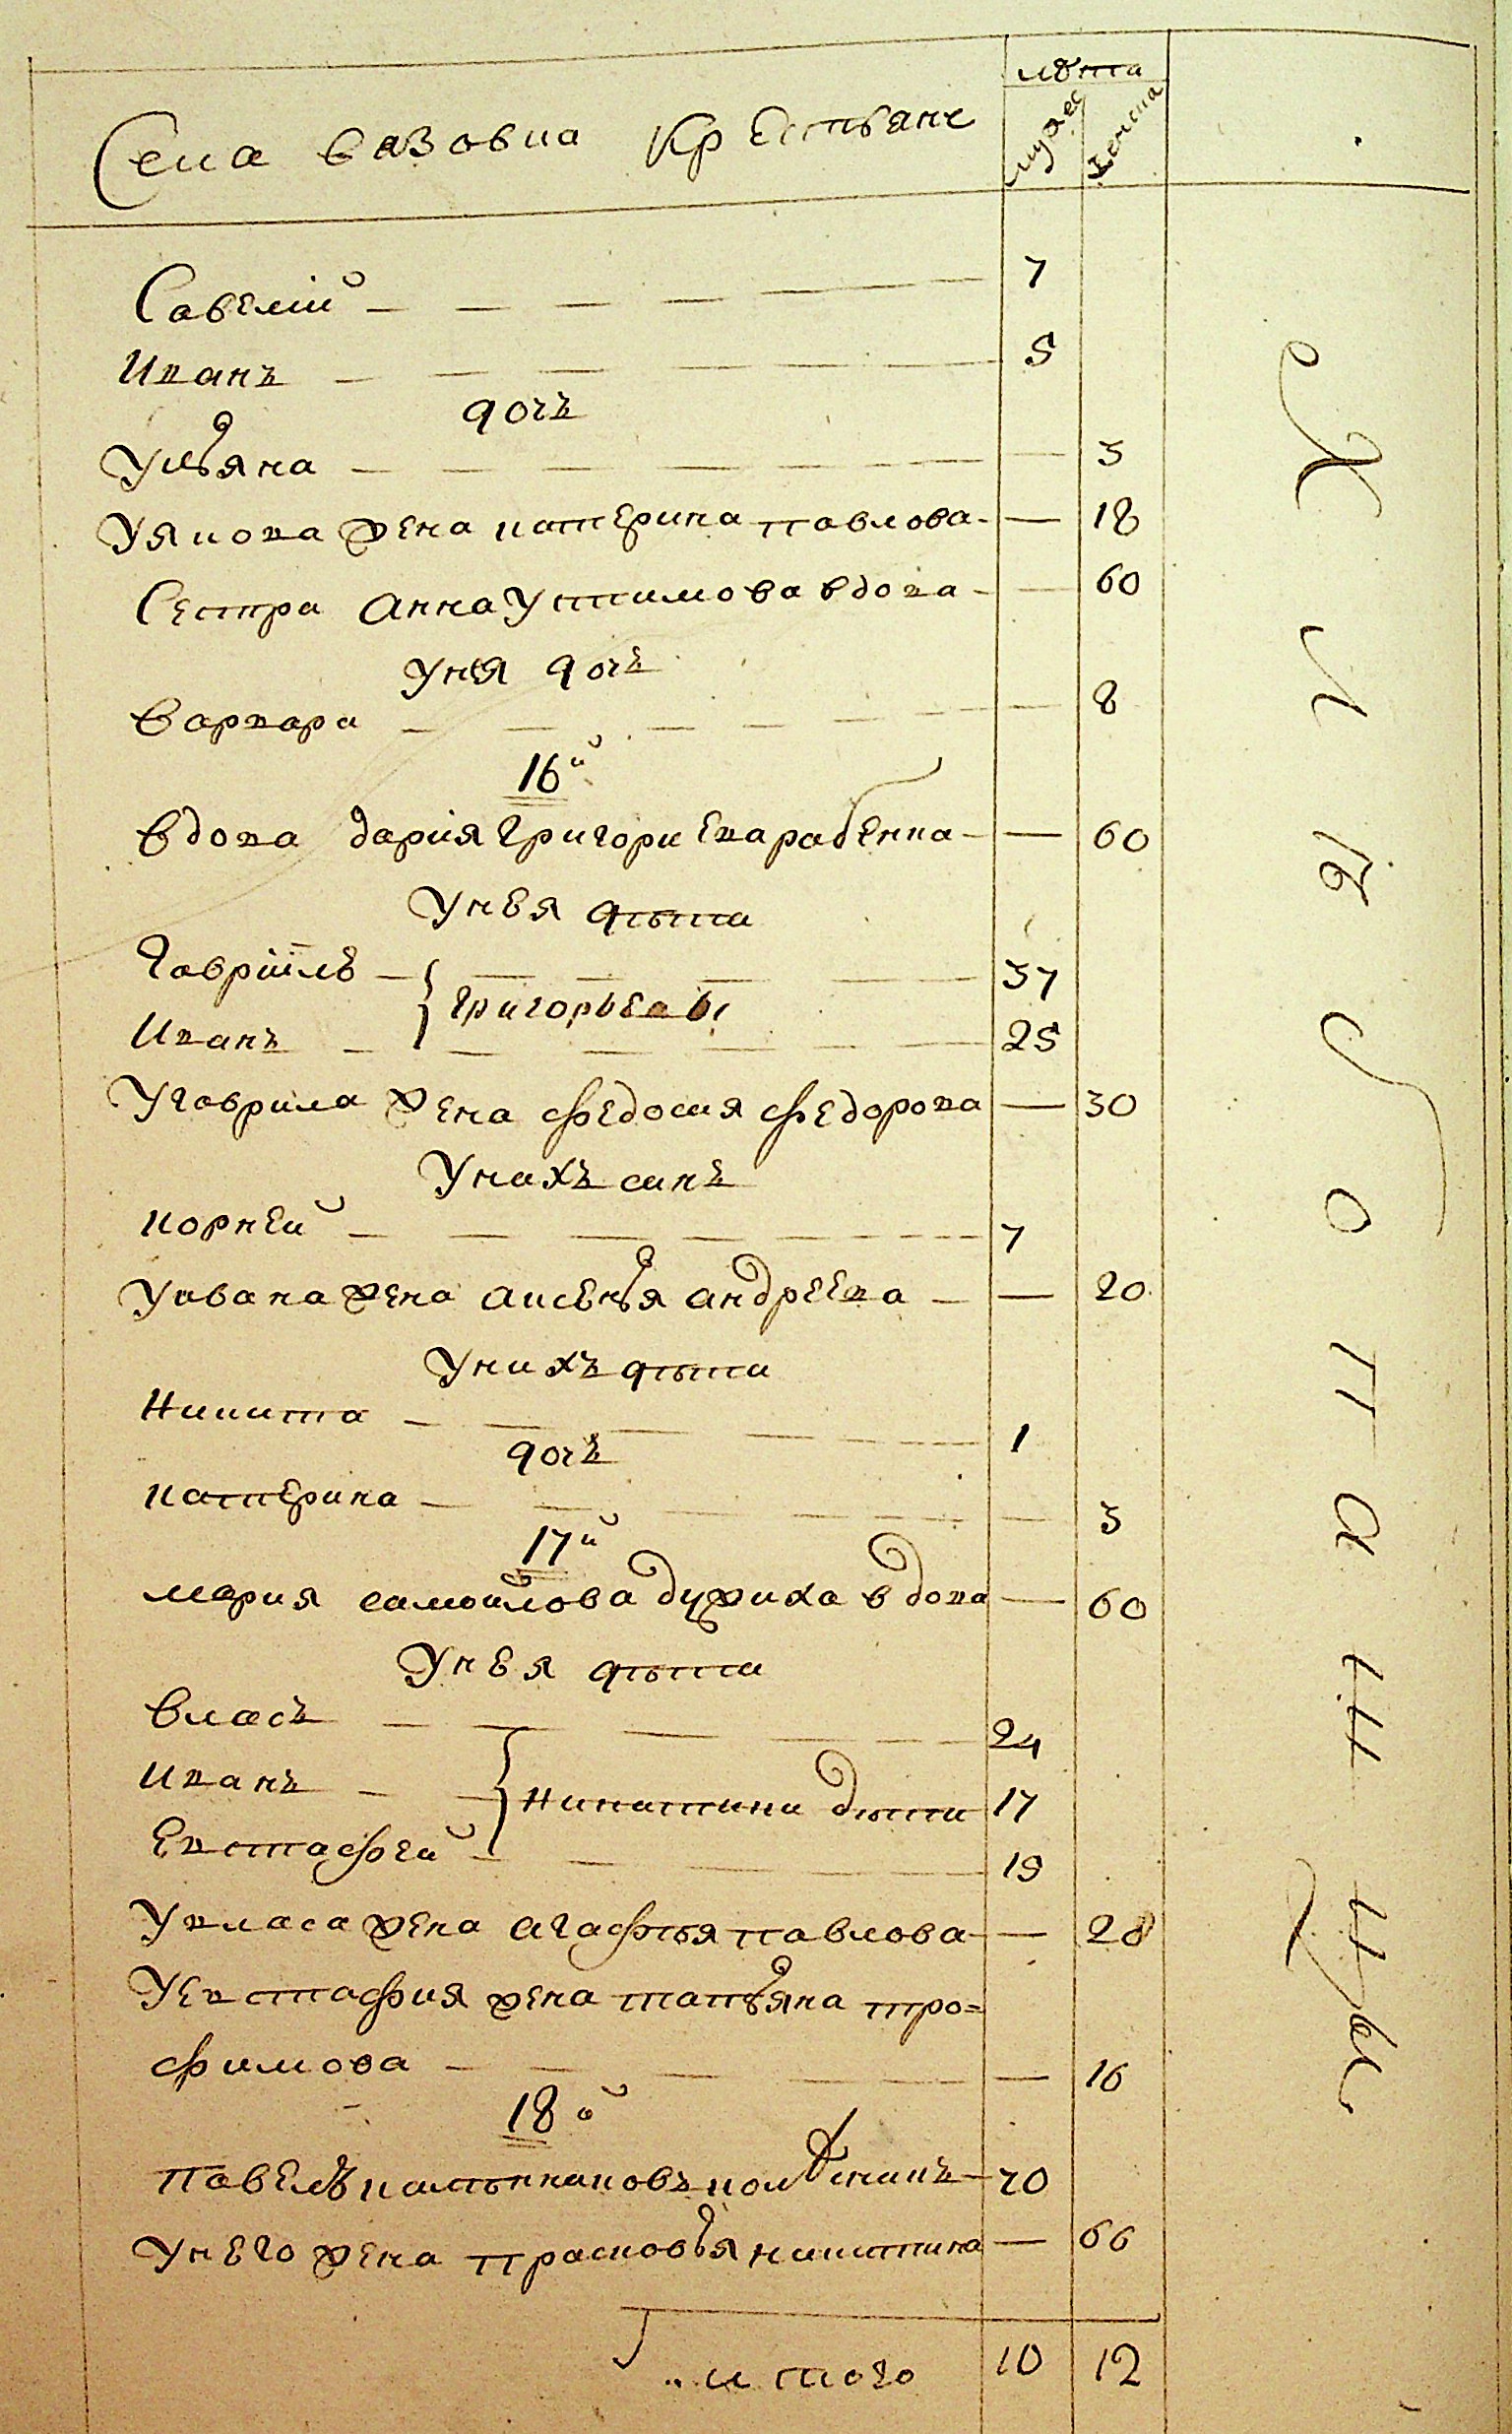 лѣта
Села вязовка Крестьяне
мужес
женска
Савелiй 7
Иванъ 5
дочь
Ульяна 3
Уякова жена катерина павлова 18
Сестра Анна Устимова вдова 60
Унея дочь
Варвара 8
16й
Вдова дария Григориева рабенка 60
Унея дѣти
Гаврiилъ 37
Григорьевы
Иванъ 25
Угаврила жена федосия федорова 30
Унихъ синъ
корней 7
Уивана жена аксенья андреева 20
Унихъ дѣти
Никита 1
дочь
катерина 3
17й
мария самойлова дужиха вдова 60
Унея дѣти
Власъ 24
Иванъ 17
Никитини дѣти
Евстафей 19
Увласа жена агафья павлова 28
Уевстафия жена татьяна тро=
фимова 16
18й
Павелъ 70
Унего жена прасковья никитина 66
итого 10 12